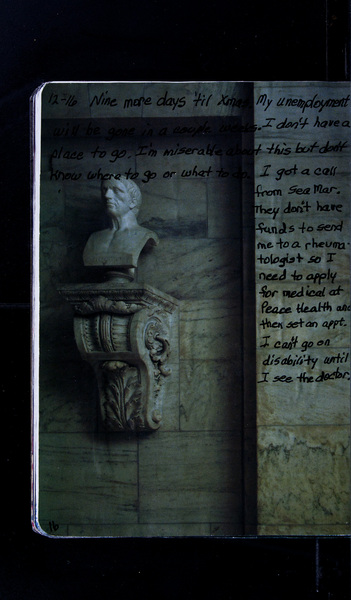 12-16 Nine more days 'til Xmas. My unemployment
will be gone in a couple weeks. I don't have a
place to go. I'm miserable about this but don't
know where to go or what to do. I got a call
from Sea Mar.
They don't have
funds to send
me to a rheuma-
tologist so I
need to apply
for medical at
Peace Health and
then set an appt.
I can't go on
disability until
I see the doctor.
16